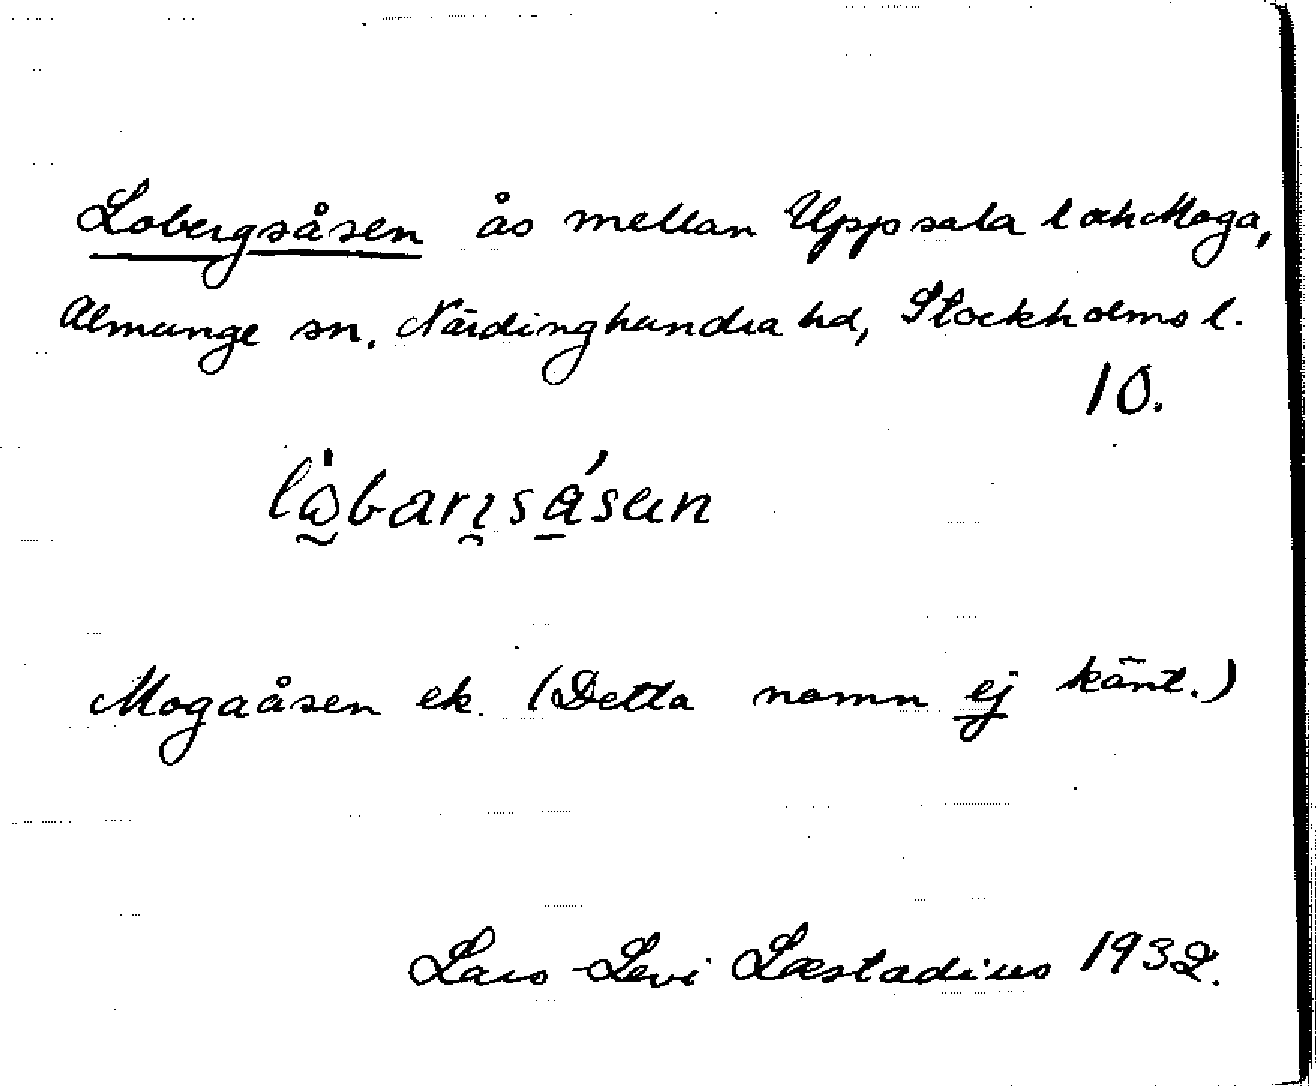 Lobergsåsen ås mellan Uppsala l och Moga,
Almunge sn, Närdinghundra hd, Stockholms l.
10.
Mogaåsen ek. (Detta namn ej känt.)
Lars-Levi Læstadius 1932.